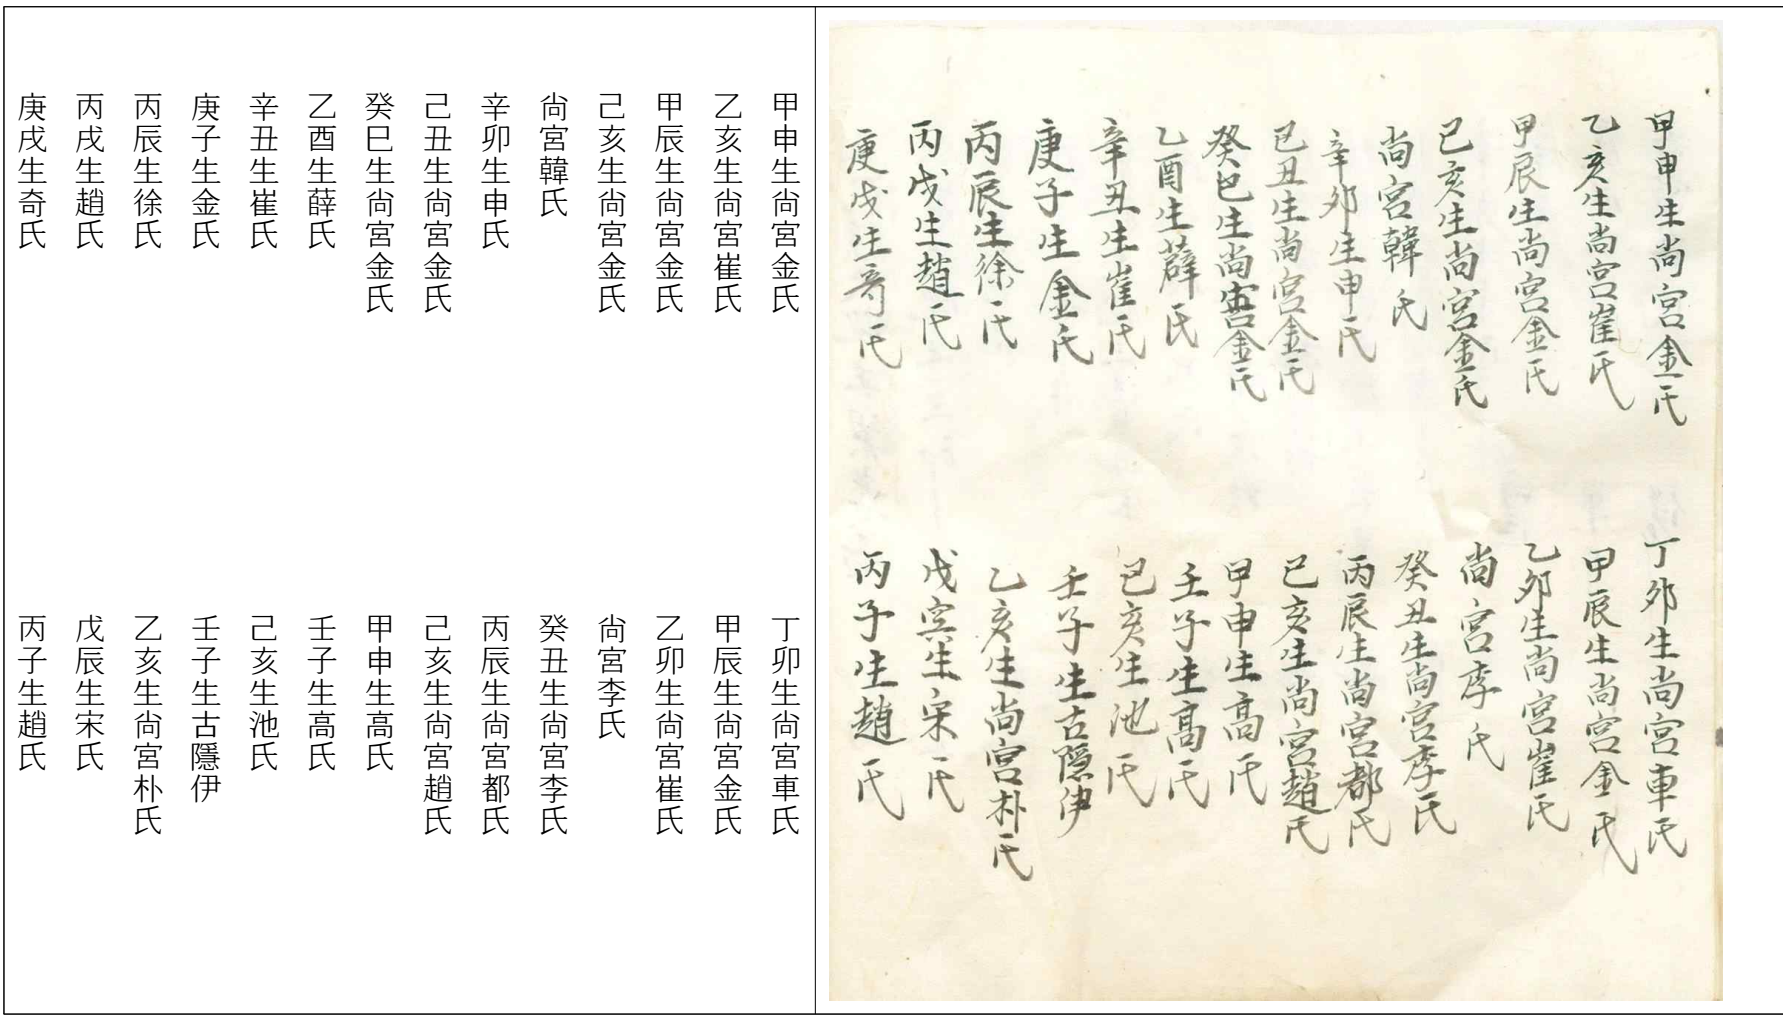 甲申生尚宮金氏
乙亥生尚宮崔氏
甲辰生尚宮金氏
己亥生尚宮金氏
尚宮韓氏
辛卯生申氏
己丑生尚宮金氏
癸巳生尚宮金氏
乙酉生薛氏
辛丑生崔氏
庚子生金氏
丙辰生徐氏
丙戌生趙氏
庚戌生奇氏
丁卯生尚宮車氏
甲辰生尚宮金氏
乙卯生尚宮崔氏
尚宮李氏
癸丑生尚宮李氏
丙辰生尚宮都氏
己亥生尚宮趙氏
甲申生高氏
壬子生高氏
己亥生池氏
壬子生古隱伊
乙亥生尚宮朴氏
戊寅生宋氏
丙子生趙氏
甲申生尙宮金氏
乙亥生尙宮崔氏
甲辰生尙宮金氏
己亥生尙宮金氏
尙宮韓氏
辛卯生申氏
己丑生尙宮金氏
癸巳生尙宮金氏
乙酉生薛氏
辛丑生崔氏
庚子生金氏
丙辰生徐氏
丙戌生趙氏
庚戌生奇氏
丁卯生尙宮車氏
甲辰生尙宮金氏
乙卯生尙宮崔氏
尙宮李氏
癸丑生尙宮李氏
丙辰生尙宮都氏
己亥生尙宮趙氏
甲申生高氏
壬子生高氏
己亥生池氏
壬子生古隱伊
乙亥生尙宮朴氏
戊辰生宋氏
丙子生趙氏